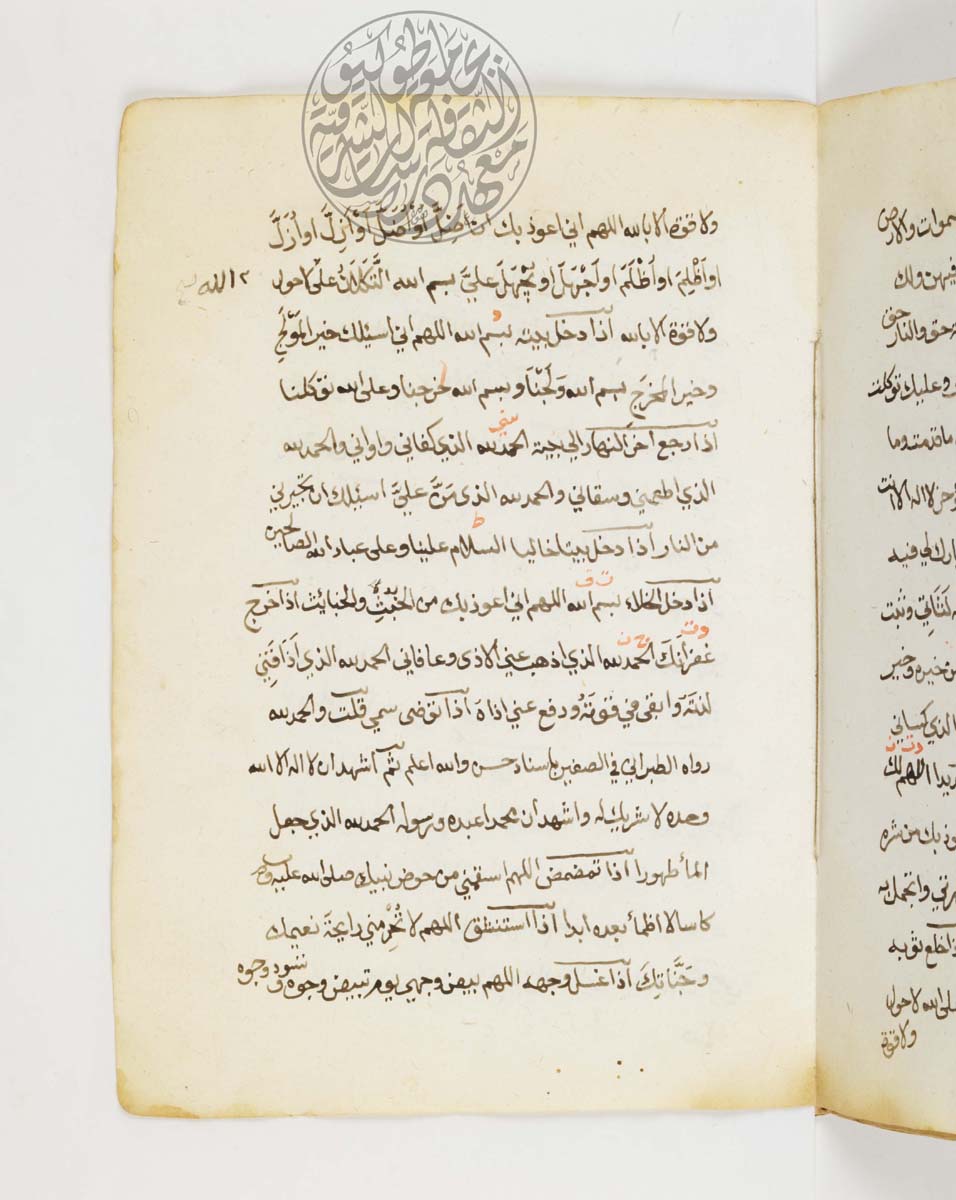 ولا قوة الا بالله اللهم اني اعوذ بك ان أَضِلَّ أَوْ أُضَلَّ أَوْ أَزِلَّ او أُزَلَّ
او أَظْلِمَ او أُظْلَمَ او أَجْهَلَ او يُجْهَلَ عليَّ بسم الله التُّكْلَانُ على الله لا حول
ولا قوة الا بالله اذا دخل بيته بسم الله اللهم اني اسئلك خير المَوْلَجِ
وخير المخرَجِ بسم الله وَلَجْنَا وبسم الله خرجنا وعلى الله توكلنا
اذا رجع اخرَ النهار الى بيته الحمد لله الذي كفاني واواني والحمد لله
الذي اطعمني وسقاني والحمد لله الذي مَنَّ عليَّ اسئلك ان تجيرني
من النار اذا دخل بيتا خاليا السلام علينا وعلى عباد الله الصالحين
اذا دخل الخلاء بسم الله اللهم اني اعوذ بك من الخُبُثِ والخبائث اذا خرج
غفرانَكَ الحمد لله الذي اذهب عني الاذى وعافاني الحمد لله الذي أَذَاقَنِي
لذتَهُ وابقى فيَّ قوتَهُ ودفع عني اذاهُ اذا توضى سمي قلت والحمد لله
رواه الطبراني في الصغير باسناد حسن والله اعلم ثم اشهد ان لا اله الا الله
وحده لا شريك له واشهد ان محمدا عبده ورسوله الحمد لله الذي جعل
الماء طهورا اذا تمضمض اللهم اسقني من حوض نبيك صلى الله عليه وسلم
كاسا لا اظمأ بعده ابدا اذا استنشق اللهم لا تُحْرِمني رايحةَ نعيمك
وجَنَّاتِكَ اذا غسل وجهه اللهم بيض وجهي يوم تبيض وجوه وتسود وجوه
سموات والارض
فيهن ولك
حق والنار حق
وعليك توكلت
ما قدمت وما
لا اله الا انت
بارك لي فيه
وثبت
من خيره وخير
الذي كساني
اللهم لك
اعوذ بك من شره
واتجمل به
اذا خلع ثوبه
على الله لا حول
ولا قوة